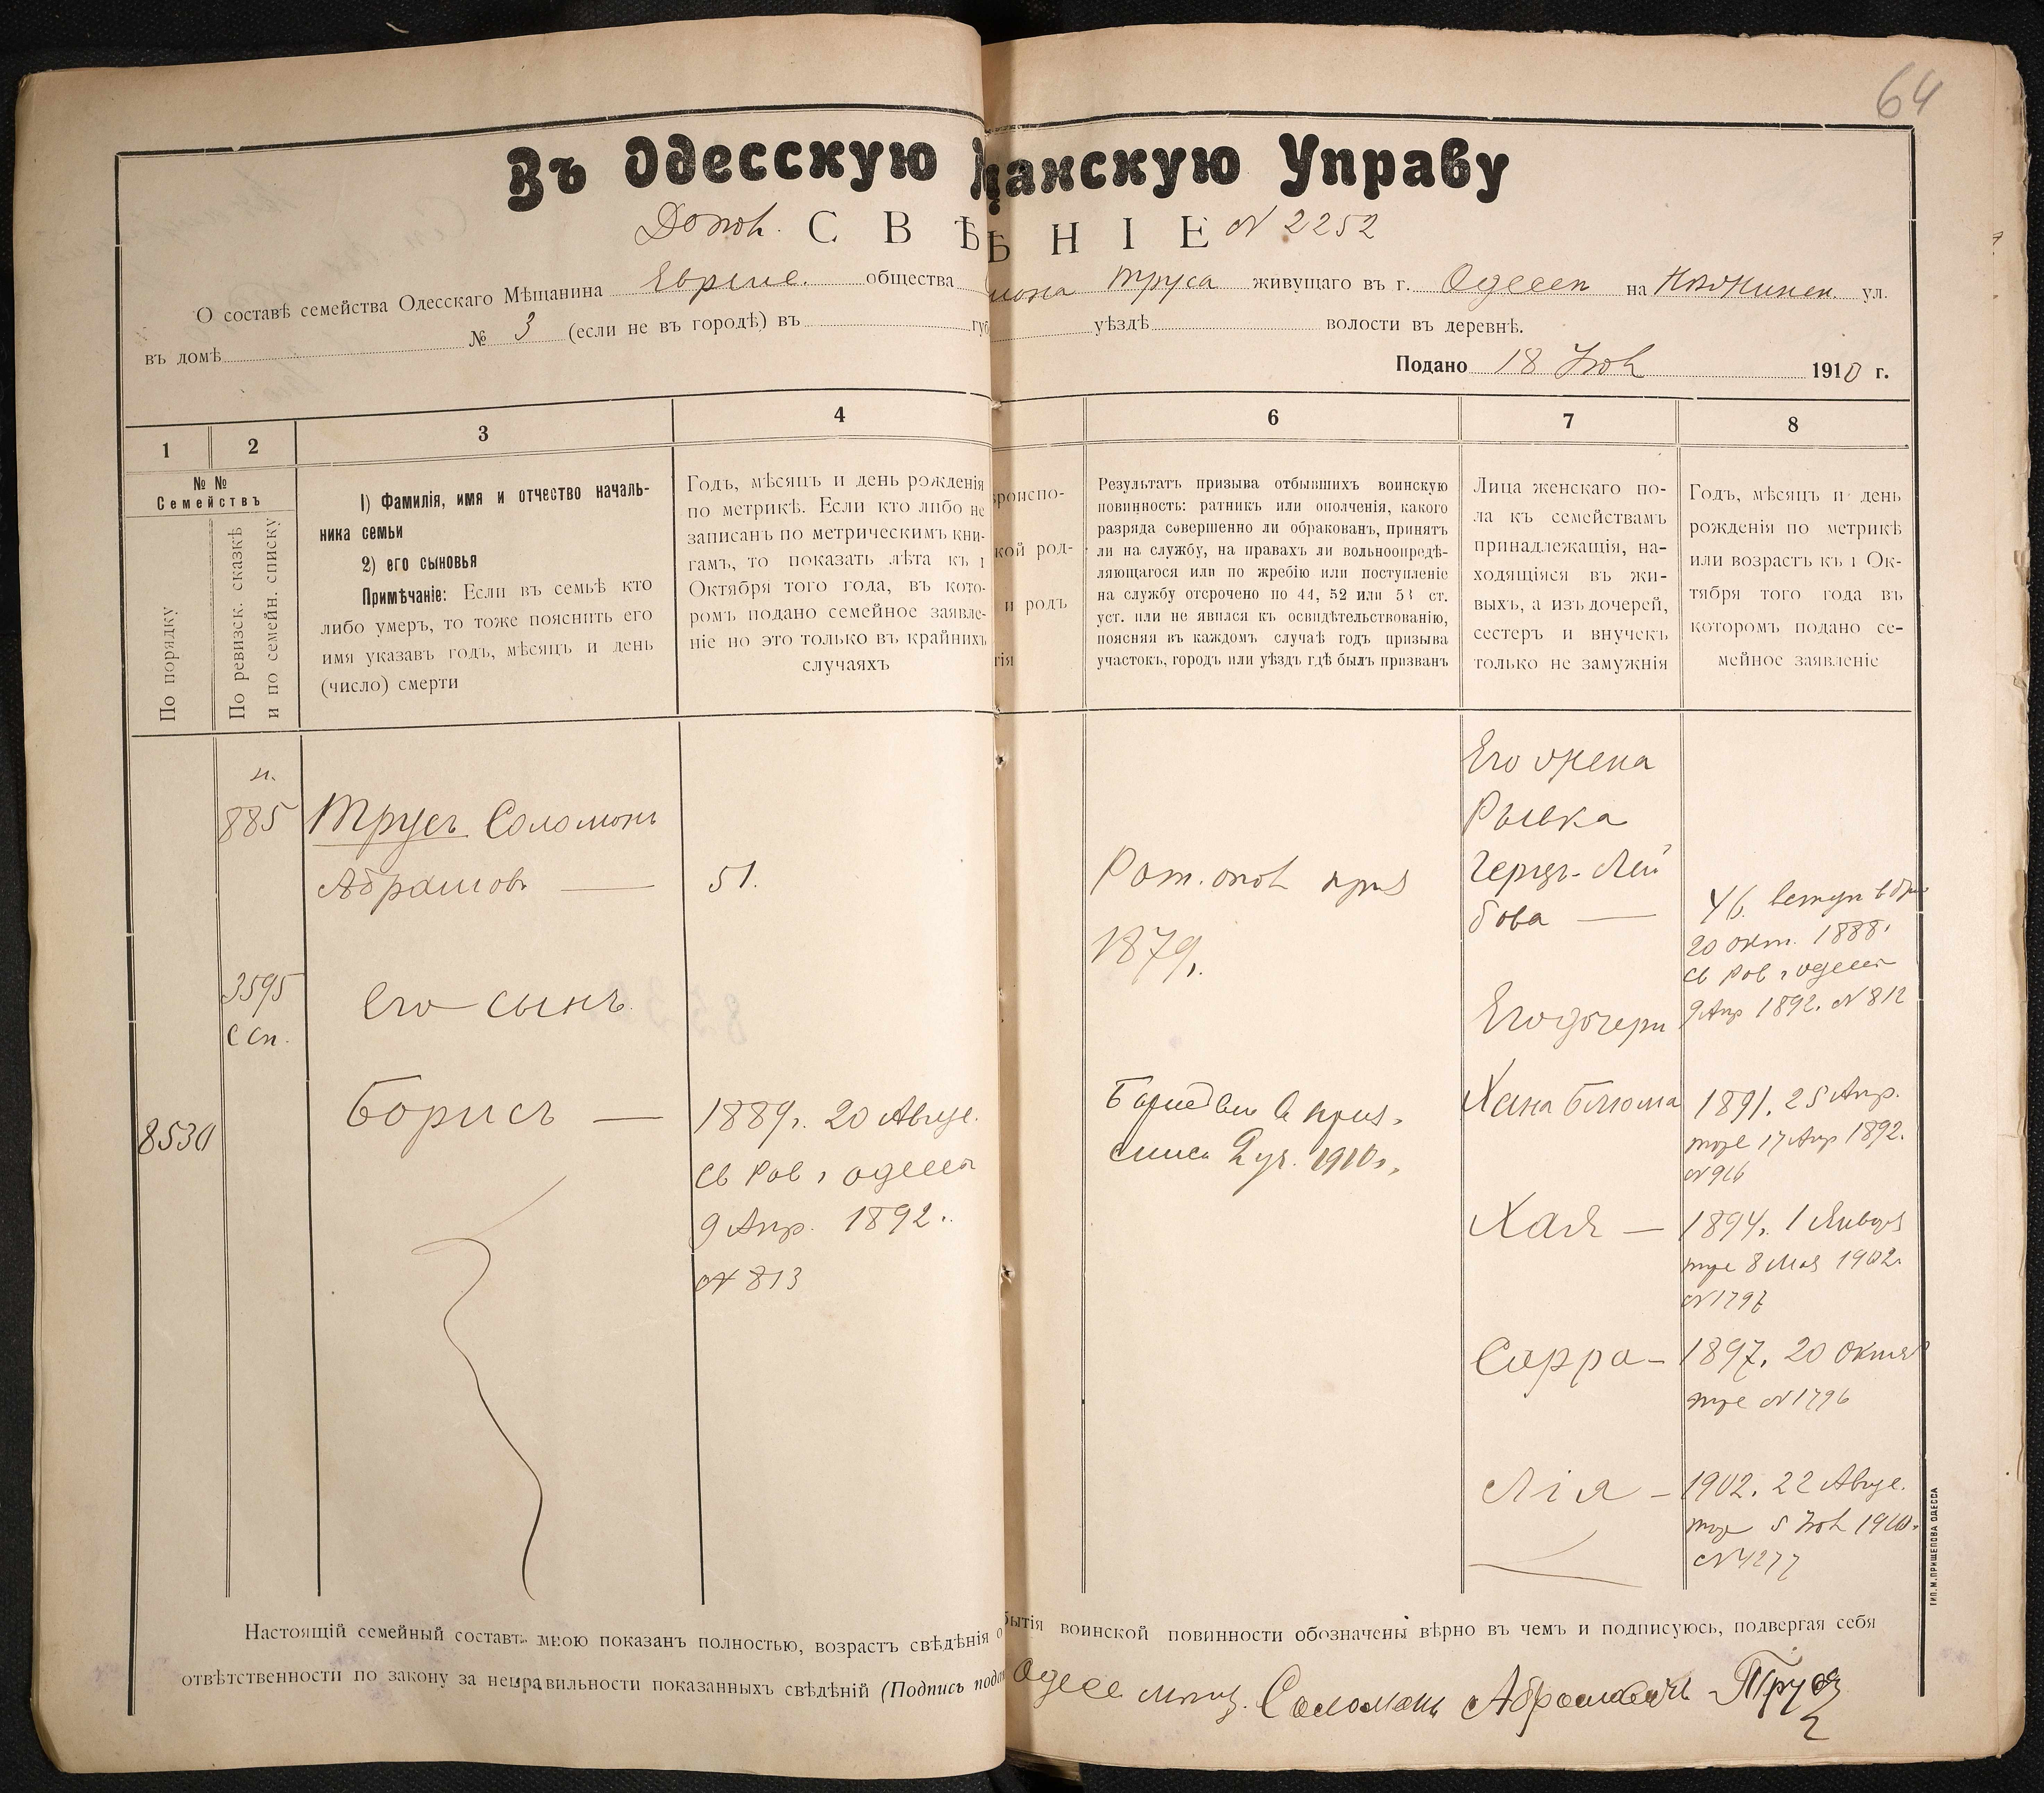 64
Въ Одесскую щанскую Управу
СВѢ ѢНІЕ N 2252
О составѣ семейства Одесскаго Мѣщанина общества Труса живущаго въ г. на ул.
въ домѣ № 3 (если не въ городѣ) въ губ уѣздѣ волости въ деревнѣ.
Подано 18 1910 г.
1 2 3 4 6 7 8
№ №
Семействъ
По порядку
По ревизск. сказкѣ
и по семейн. списку
1) Фамилія, имя и отчество началь-
ника семьи
2) его сыновья
Примѣчаніе: Если въ семьѣ кто
либо умеръ, то тоже пояснить его
имя указавъ годъ, мѣсяцъ и день
(число) смерти
Годъ, мѣсяцъ и день рожденія
по метрикѣ. Если кто либо не
записанъ по метрическимъ кни-
гамъ, то показать лѣта къ 1
Октября того года, въ кото-
ромъ подано семейное заявле-
ніе но это только въ крайнихъ
случаяхъ
роиспо-
кой род-
и родъ
тія
Результатъ призыва отбывшихъ воинскую
повинность: ратникъ или ополченія, какого
разряда совершенно ли обракованъ, принятъ
ли на службу, на правахъ ли вольноопредѣ-
ляющагося или по жребію или поступленіе
на службу отсрочено по 44, 52 или 53 ст.
уст. или не явился къ освидѣтельствованію,
поясняя въ каждомъ случаѣ годъ призыва
участокъ, городъ или уѣздъ гдѣ былъ призванъ
Лица женскаго по-
ла къ семействамъ
принадлежащія, на-
ходящіяся въ жи-
выхъ, а изъ дочерей,
сестеръ и внучекъ
только не замужнія
Годъ, мѣсяцъ и день
рожденія по метрикѣ
или возрастъ къ 1 Ок-
тября того года въ
которомъ подано се-
мейное заявленіе
н.
885
3595
С сп.
8530
Трусъ Соломонъ
Абрамовъ — 51.
Его сынъ.
Борисъ — 1889г. 20 Авгус.
Св Рав г Одессы
9 Апр. 1892.
N 813
Рат. опол приз
1879г.
2 уч. 1910г.
Его жена
Рывка
Герцъ-Лей
бова — 46.
20 окт. 1888г
Св Рав г Одессы
9 Апр 1892. N 812
Его дочери
Хана Блюма 1891. 25 Апр.
тоже 17 Апр 1892.
N 916
Хая — 1894г. 1 Января
тоже 8 Мая 1902г.
N 1797
Сарра — 1897. 20 Октяб
тоже N 1796
Лія — 1902. 22 Авгус.
N 4277
Настоящій семейный составъ мною показанъ полностью, возрастъ свѣдѣнія о бытія воинской повинности обозначены вѣрно въ чемъ и подписуюсь, подвергая себя
отвѣтственности по закону за неправильности показанныхъ свѣдѣній (Подпись пода Одесс мѣщ. Соломонъ Абрамовичъ Трусъ
ТИП. М. ПРИЩЕПОВА ОДЕССА